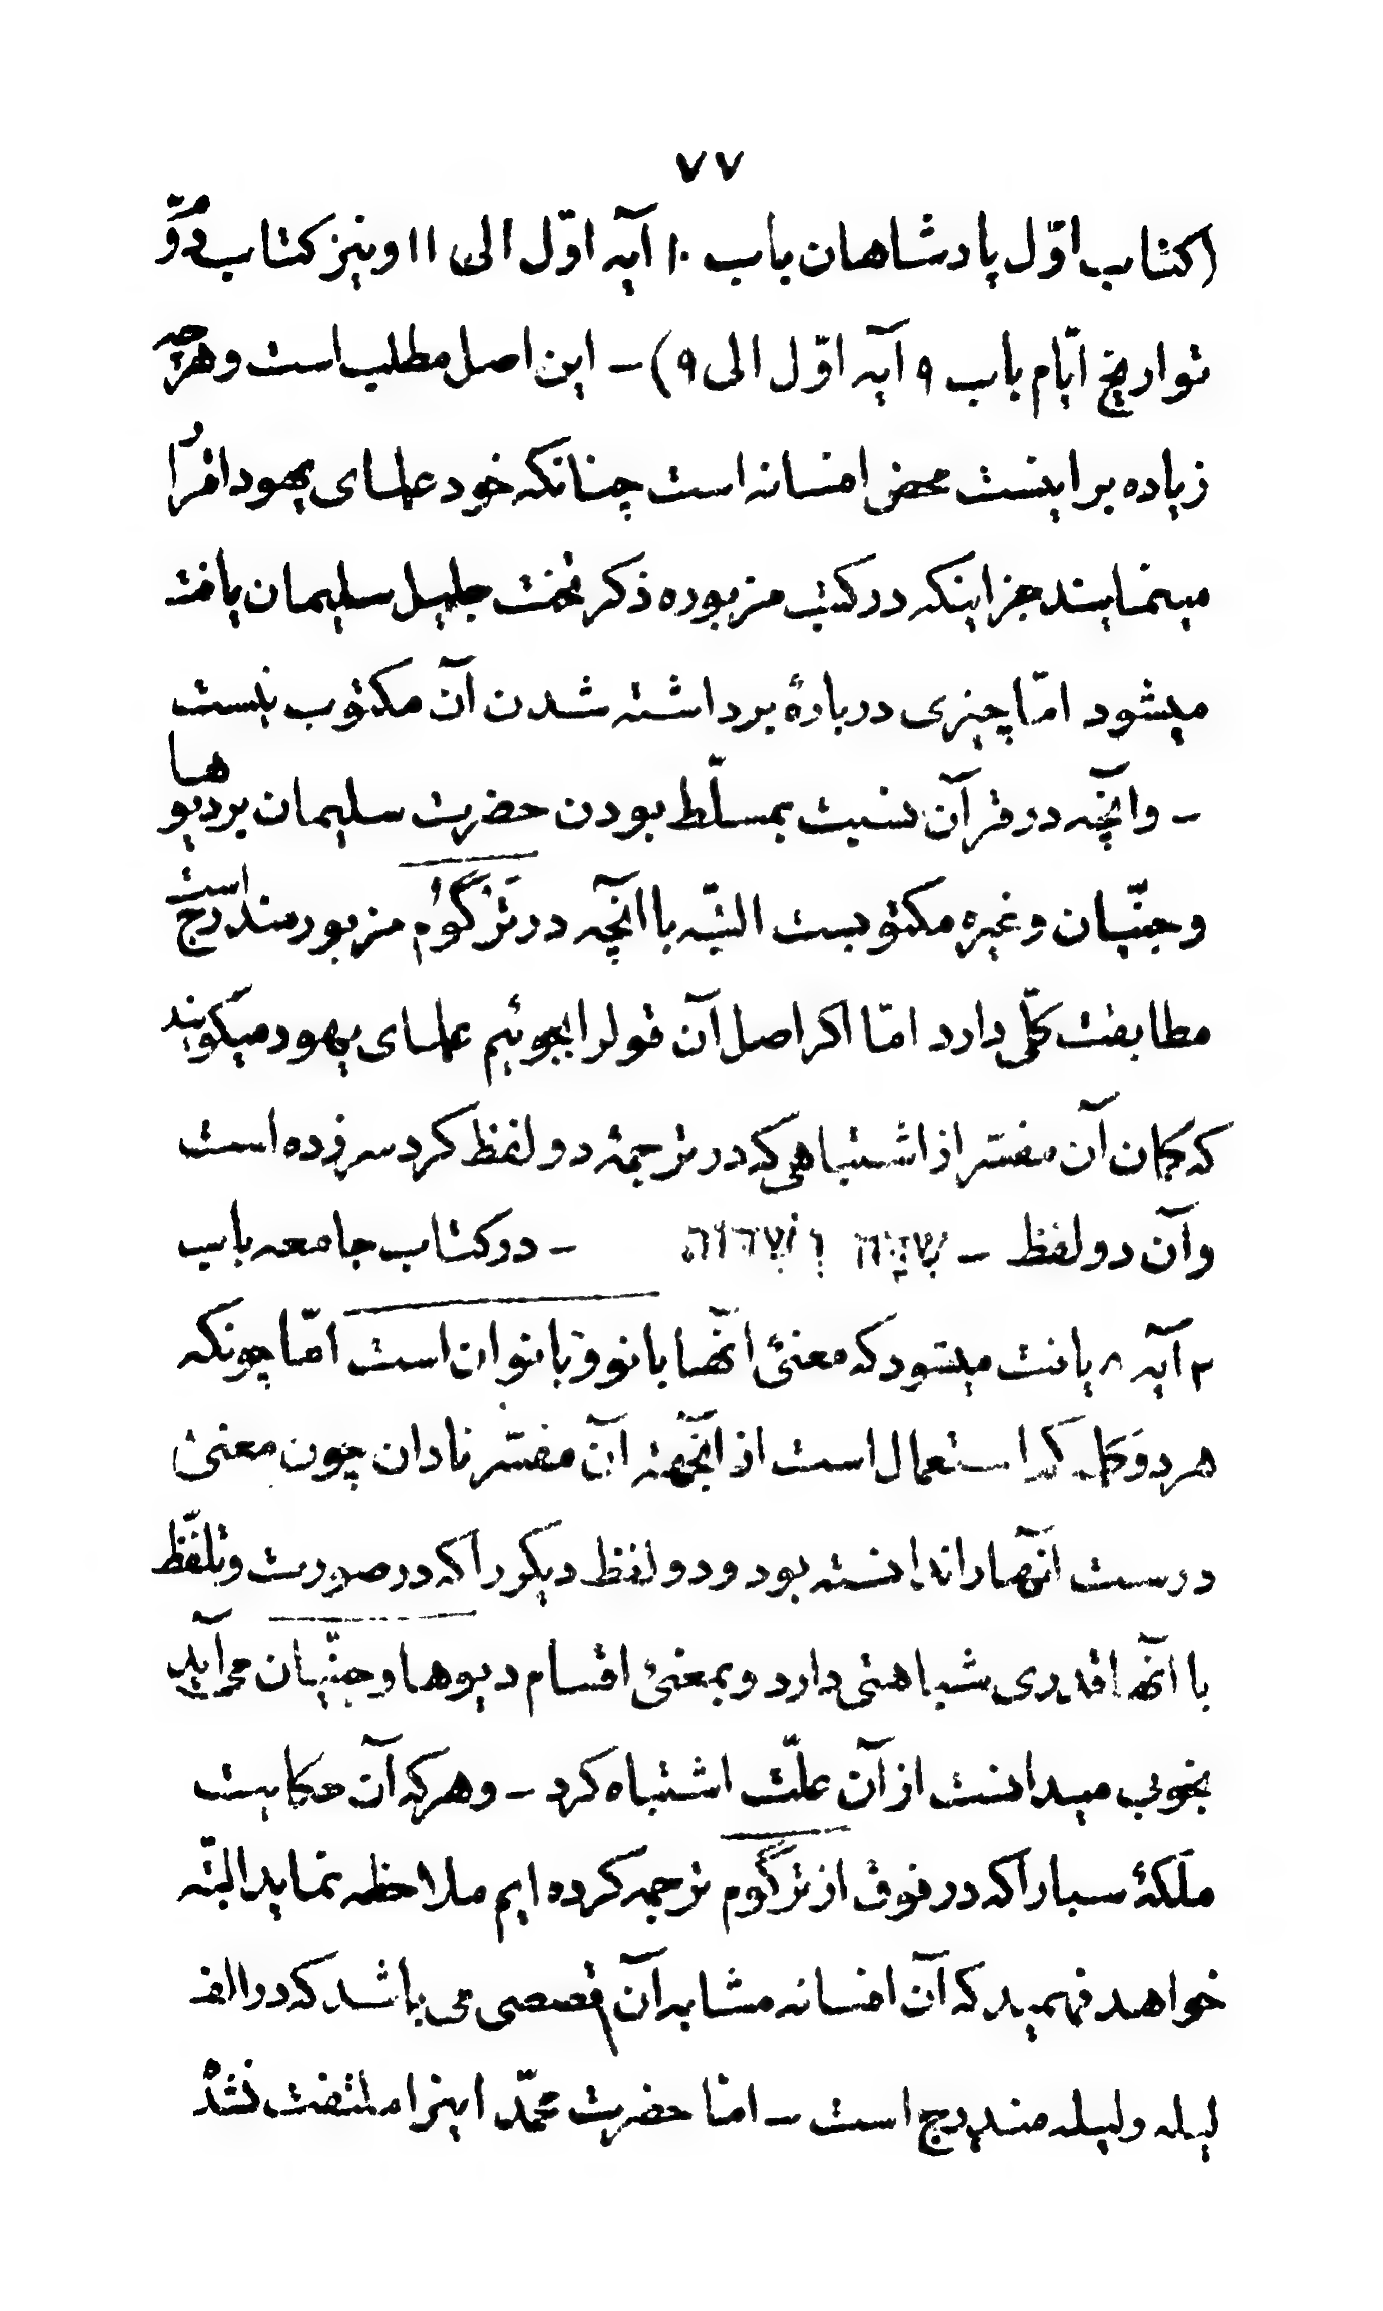 ۷۷
(کتاب اوّل پادشاهان باب ۱۰ آیه اوّل الی ۱۱ و نیز کتاب دوّم
تواریخ ایّام باب ۹ آیه اوّل الی ۹) – این اصل مطلب است و هرچه
زیاده بر اینست محض افسانه است چنانکه خود علمای یهود اقرار
مینمایند جز اینکه در کتب مزبوره ذکر تخت جلیل سلیمان یافت
میشود امّا چیزی دربارهٔ برداشته شدن آن مکتوب نیست
– و آنچه در قرآن نسبت بمسلّط بودن حضرت سلیمان بر دیوها
و جنّیان و غیره مکتوبست البتّه با آنچه در تَرْگُوُم مزبور مندرج است
مطابقت کلّی دارد امّا اکر اصل آن قولرا بجوئیم علمای یهود میکویند
که کمان آن مفسّر از اشتباهی که در ترجمهٔ دو لفظ کرد سر زده است
و آن دو لفظ – שִׁדָּה וְשִׁדּוֹת – در کتاب جامعه باب
۲ آیه ۸ یافت میشود که معنئ آنها بانو و بانوان است امّا چونکه
هر دو کلمه کم استعمال است از آنجهته آن مفسّر نادان چون معنئ
درست آنها را ندانسته بود و دو لفظ دیکر را که در صورت و تلفّظ
با آنها قدری شباهتی دارد و بمعنئ اقسام دیوها و جنّیان می آید
بخوبی میدانست از آن علّت اشتباه کرد – و هر که آن حکایت
ملکهٔ سبا را که در فوق از ترگوم ترجمه کرده ایم ملاحظه نماید البتّه
خواهد فهمید که آن افسانه مشابه آن قصصی می باشد که در الف
لیله و لیله مندرج است – امّا حضرت محمّد اینرا ملتفت نشده